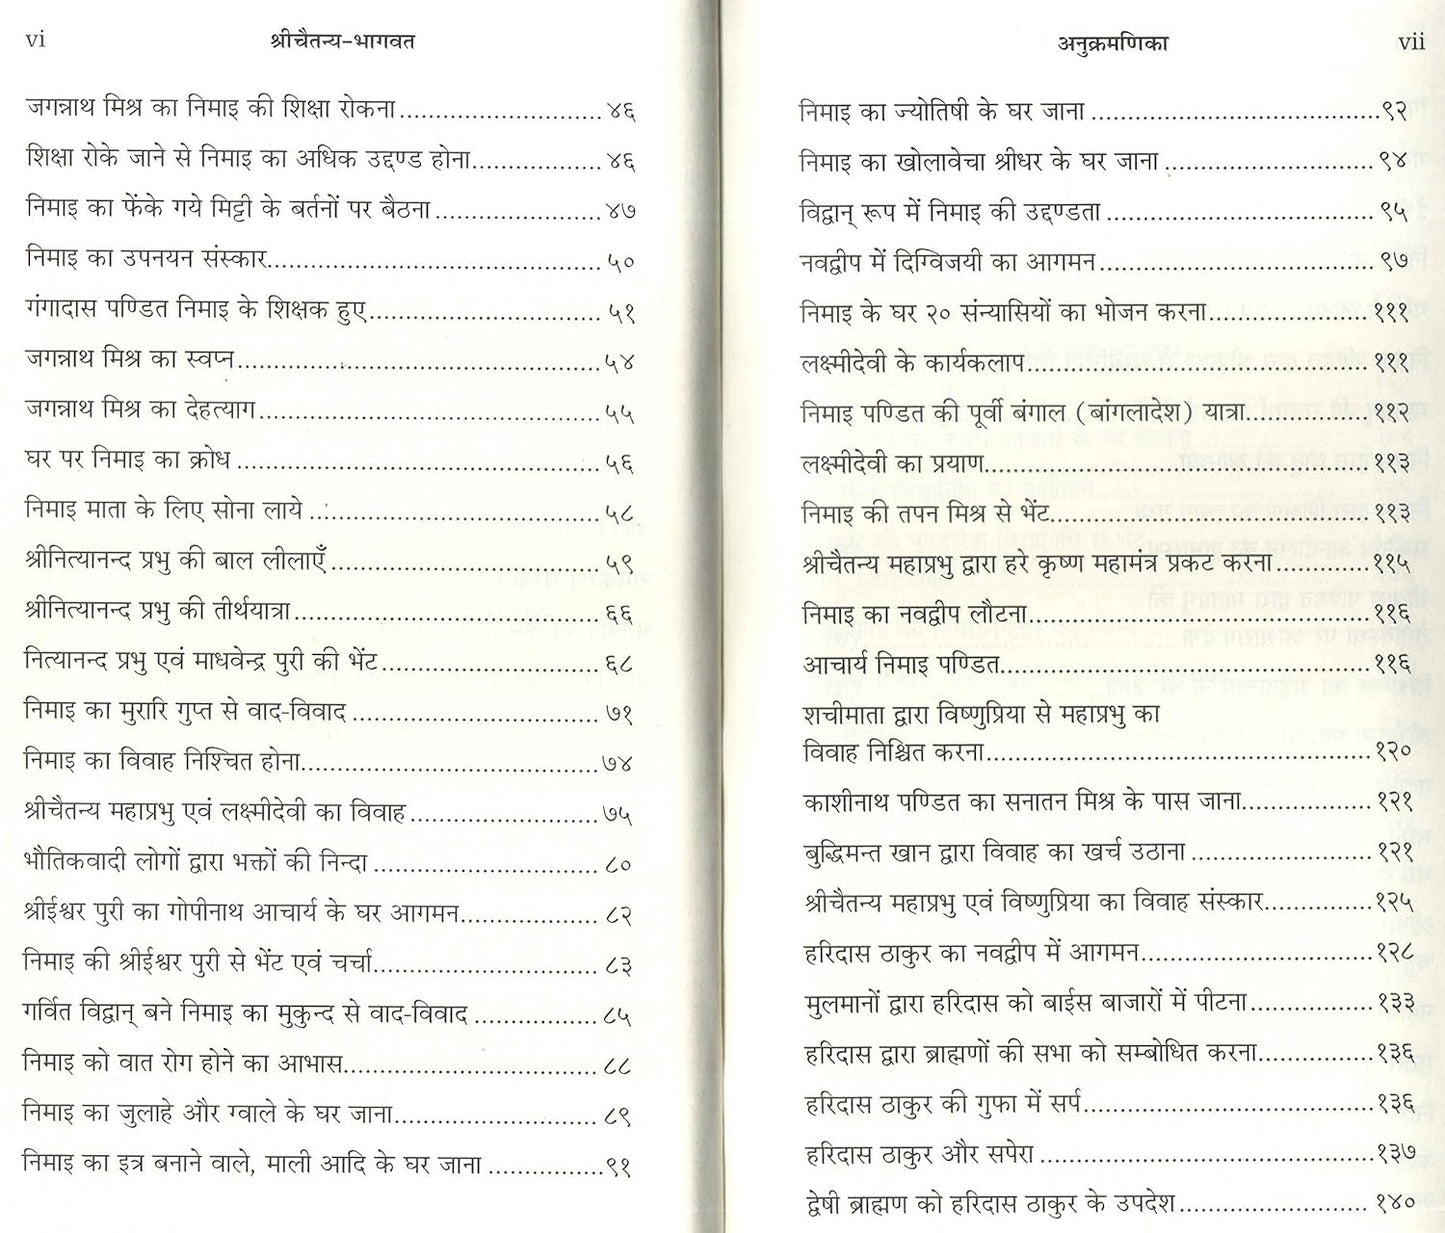 vi श्रीचैतन्य-भागवत
जगन्नाथ मिश्र का निमाइ की शिक्षा रोकना.......................४६
शिक्षा रोके जाने से निमाइ का अधिक उद्दण्ड होना...............४६
निमाइ का फेंके गये मिट्टी के बर्तनों पर बैठना...................४७
निमाइ का उपनयन संस्कार......................................५०
गंगादास पण्डित निमाइ के शिक्षक हुए..........................५१
जगन्नाथ मिश्र का स्वप्न.........................................५४
जगन्नाथ मिश्र का देहत्याग.......................................५५
घर पर निमाइ का क्रोध.........................................५६
निमाइ माता के लिए सोना लाये.................................५८
श्रीनित्यानन्द प्रभु की बाल लीलाएँ...............................५९
श्रीनित्यानन्द प्रभु की तीर्थयात्रा...................................६६
नित्यानन्द प्रभु एवं माधवेन्द्र पुरी की भेंट.........................६८
निमाइ का मुरारि गुप्त से वाद-विवाद............................७१
निमाइ का विवाह निश्चित होना..................................७४
श्रीचैतन्य महाप्रभु एवं लक्ष्मीदेवी का विवाह......................७५
भौतिकवादी लोगों द्वारा भक्तों की निन्दा..........................८०
श्रीईश्वर पुरी का गोपीनाथ आचार्य के घर आगमन................८२
निमाइ की श्रीईश्वर पुरी से भेंट एवं चर्चा..........................८३
गर्वित विद्वान् बने निमाइ का मुकुन्द से वाद-विवाद..............८५
निमाइ को वात रोग होने का आभास.............................८८
निमाइ का जुलाहे और ग्वाले के घर जाना.......................८९
निमाइ का इत्र बनाने वाले, माली आदि के घर जाना.............९१
अनुक्रमणिका vii
निमाइ का ज्योतिषी के घर जाना.................................९२
निमाइ का खोलावेचा श्रीधर के घर जाना........................९४
विद्वान् रूप में निमाइ की उद्दण्डता...............................९५
नवद्वीप में दिग्विजयी का आगमन................................९७
निमाइ के घर २० संन्यासियों का भोजन करना..................१११
लक्ष्मीदेवी के कार्यकलाप.......................................१११
निमाइ पण्डित की पूर्वी बंगाल (बांगलादेश) यात्रा..............११२
लक्ष्मीदेवी का प्रयाण...........................................११३
निमाइ की तपन मिश्र से भेंट....................................११३
श्रीचैतन्य महाप्रभु द्वारा हरे कृष्ण महामंत्र प्रकट करना...........११५
निमाइ का नवद्वीप लौटना.......................................११६
आचार्य निमाइ पण्डित..........................................११६
शचीमाता द्वारा विष्णुप्रिया से महाप्रभु का
विवाह निश्चित करना...........................................१२०
काशीनाथ पण्डित का सनातन मिश्र के पास जाना..............१२१
बुद्धिमन्त खान द्वारा विवाह का खर्च उठाना.....................१२१
श्रीचैतन्य महाप्रभु एवं विष्णुप्रिया का विवाह संस्कार............१२५
हरिदास ठाकुर का नवद्वीप में आगमन..........................१२८
मुलमानों द्वारा हरिदास को बाईस बाजारों में पीटना..............१३३
हरिदास द्वारा ब्राह्मणों की सभा को सम्बोधित करना.............१३६
हरिदास ठाकुर की गुफा में सर्प.................................१३६
हरिदास ठाकुर और सपेरा......................................१३७
द्वेषी ब्राह्मण को हरिदास ठाकुर के उपदेश......................१४०